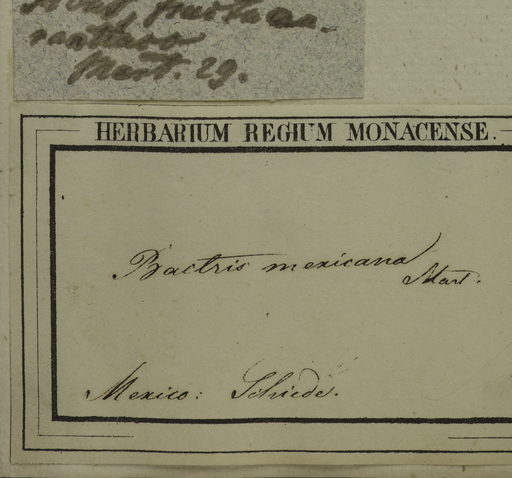 Mart. 29.
HERBARIUM REGIUM MONACENSE.
Bactris mexicana
Mart.
Mexico: Schiede.